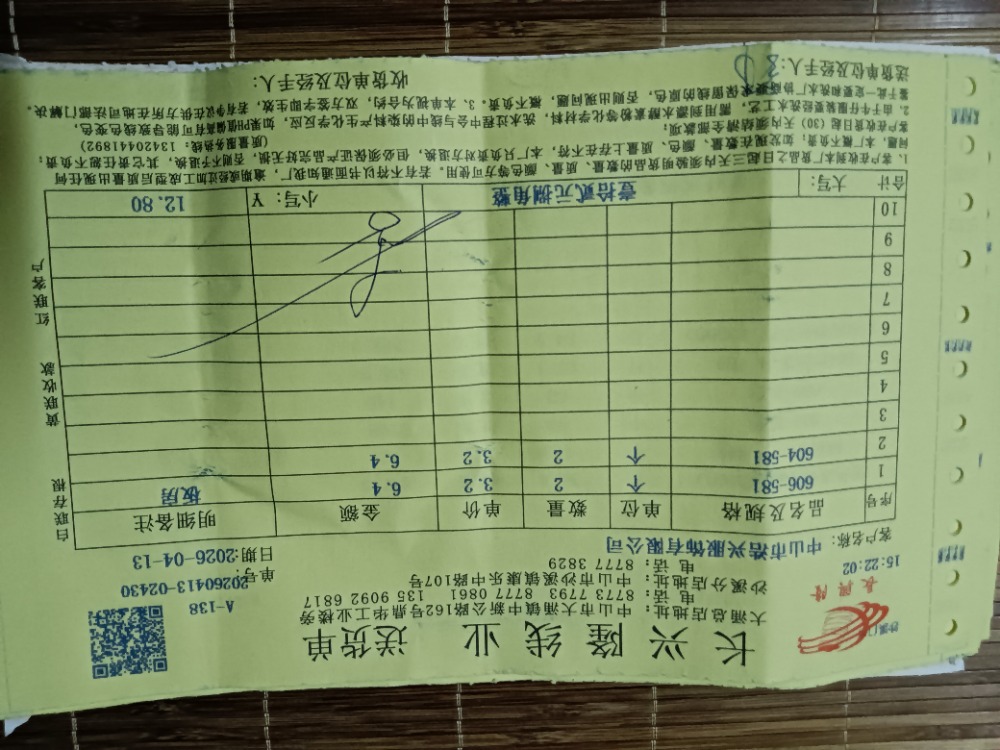 长兴隆线业 送货单
长兴隆
大涌总店地址: 中山市大涌镇中新公路162号鼎华工业楼旁
电 话: 8773 7793 8777 0861 135 9092 6817
沙溪分店地址: 中山市沙溪镇康乐中路107号
电 话: 8777 3829
A-138
单号: 20260413-02430
15:22:02
客户名称: 中山市浩兴服饰有限公司
日期:2026-04-13
序号 品名及规格 单位 数量 单价 金额 明细备注
1 606-581 个 2 3.2 6.4 板房
2 604-581 个 2 3.2 6.4
3
4
5
6
7
8
9
10
合计 大写: 壹拾贰元捌角整 小写: ¥ 12.80
白联存根 黄联收款 红联客户
1、客户在收到本厂货品之日起三天内须验明货品的数量、质量、颜色等方可使用。若有不符以书面通知我厂,逾期或经过加工成型后质量出现任何
问题,本厂概不负责,如发现在数量、颜色、质量上存在不符,本厂只负责对方退换,但必须保证产品完好无损,否则不予退换,其它责任恕不负责;
客户在收货日起(30)天内须结清全部款项; (质量服务热线: 13420441892)
2、由于牛仔服装要经洗水工艺,需用到漂水酵素粉等化学材料,洗水过程中会与线中的染料产生化学反应,如果PH值偏高有可能导致线色变色,
鉴于此一定要和洗水厂协商要求保留线的原色,否则出现问题,概不负责。3、本单视为合约,双方签字即生效,若有争议在供方所在地司法部门解决。
送货单位及经手人:
收货单位及经手人: